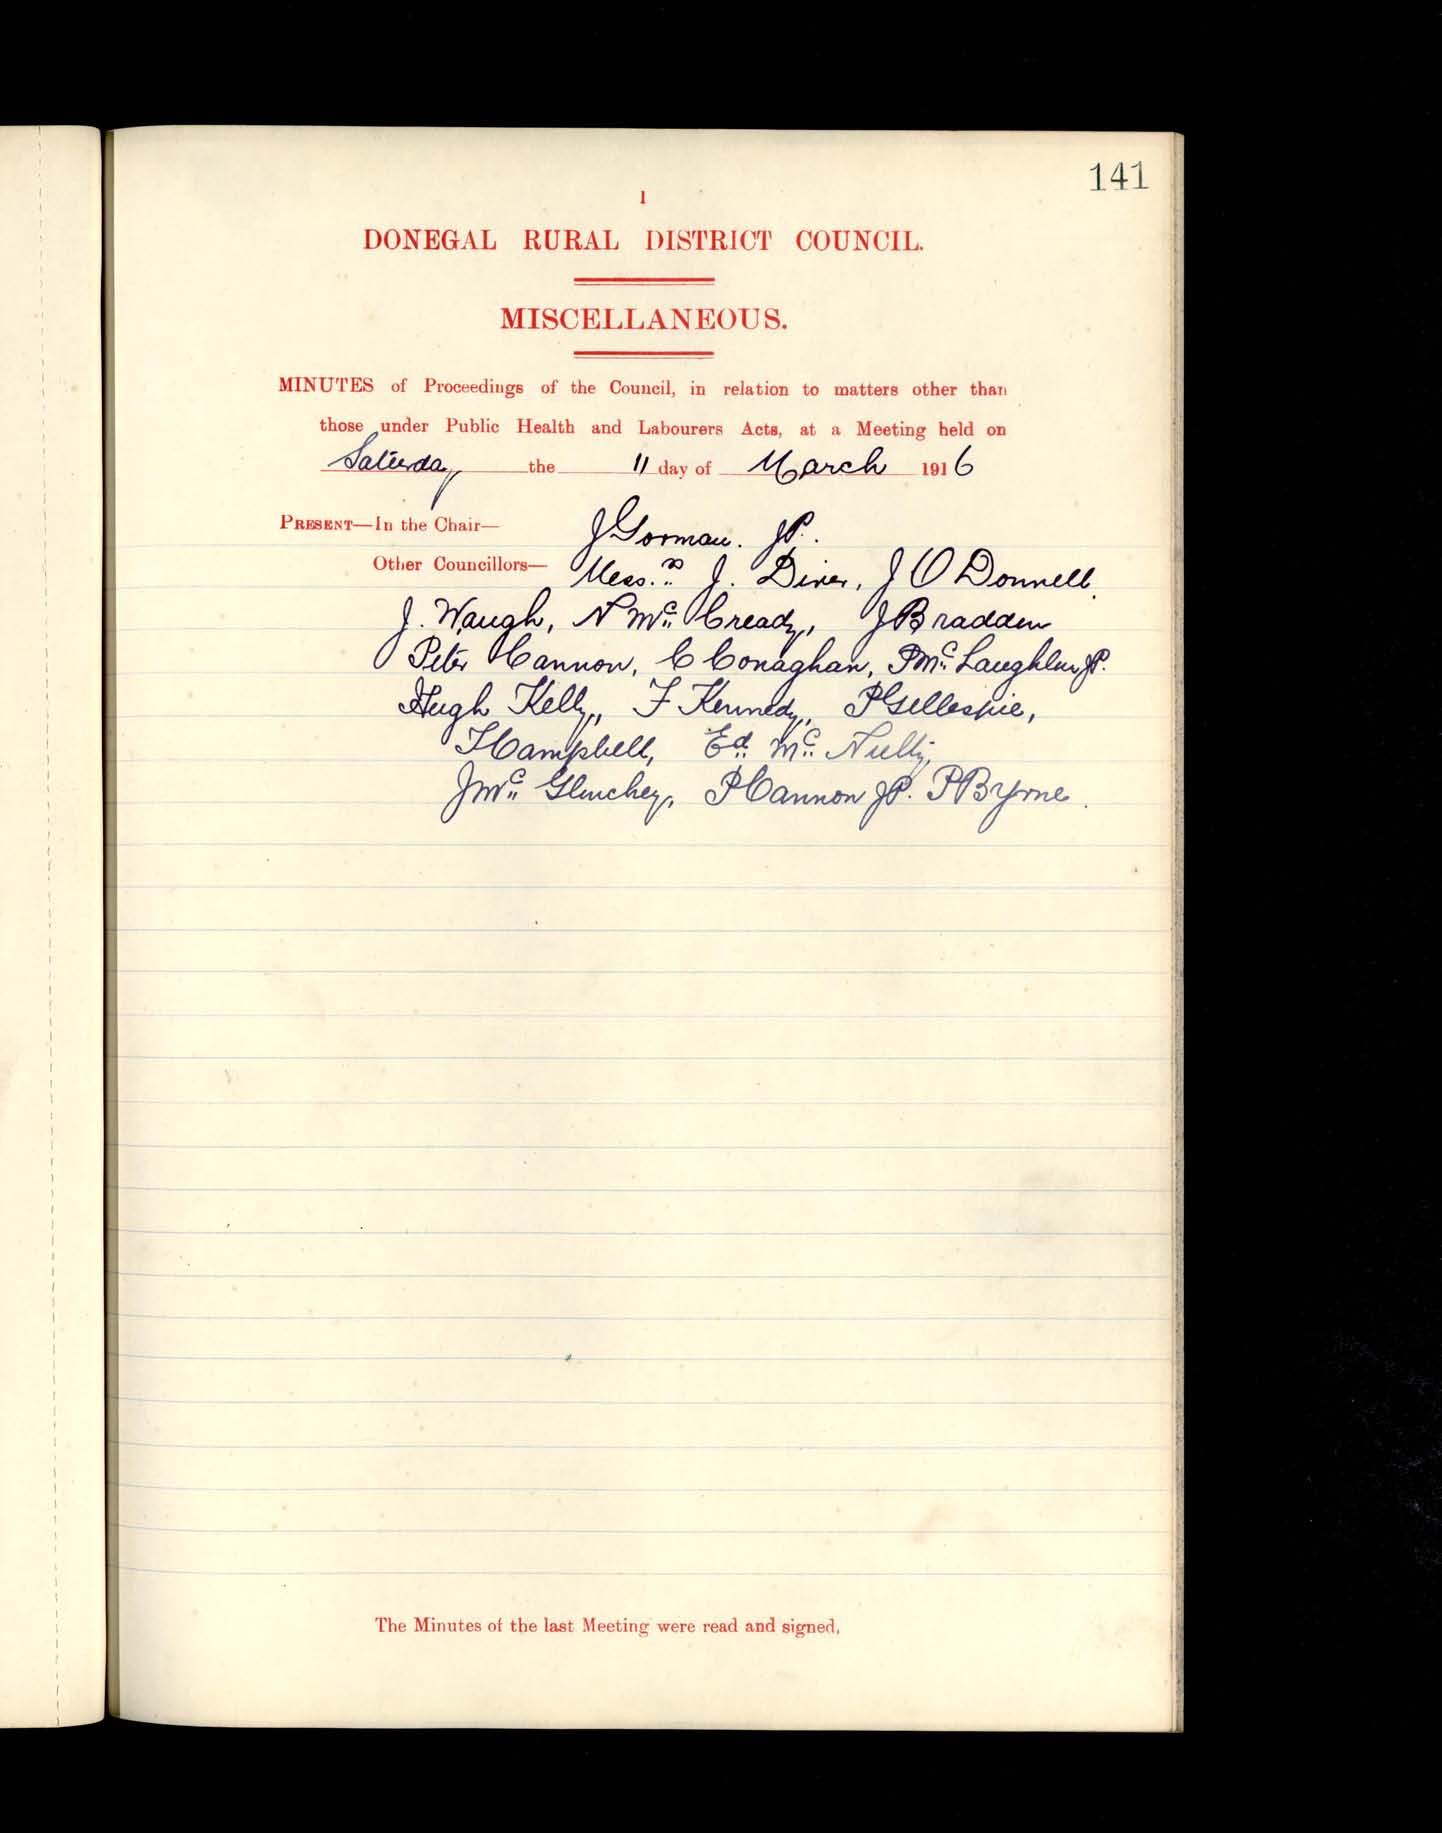 141
1
DONEGAL RURAL DISTRICT COUNCIL.
MISCELLANEOUS.
MINUTES of Proceedings of the Council, in relation to matters other than
those under Public Health and Labourers Acts, at a Meeting held on
Saturday the 11 day of March 1916
PRESENT—In the Chair— J Gorman. JP.
Other Councillors— Mess.rs J. Diver, J O Donnell.
J. Waugh, N Mc Cready, J Bradden
Peter Cannon, C Conaghan, P Mc Laughlin JP.
Hugh Kelly, F Kennedy, P Gillespie,
T Campbell, Ed. Mc Nulty,
J Mc Glinchey, P Cannon JP. P Byrne.
The Minutes of the last Meeting were read and signed.